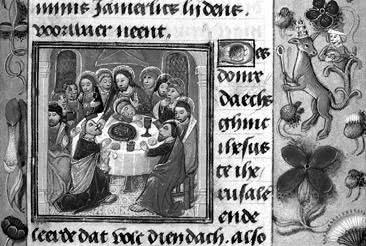 Jamerlics lidens.
neent.
Des
donre
daechs
ghinc
ihesus
te ihe
rusale
ende
leerde dat volc diendach. Also